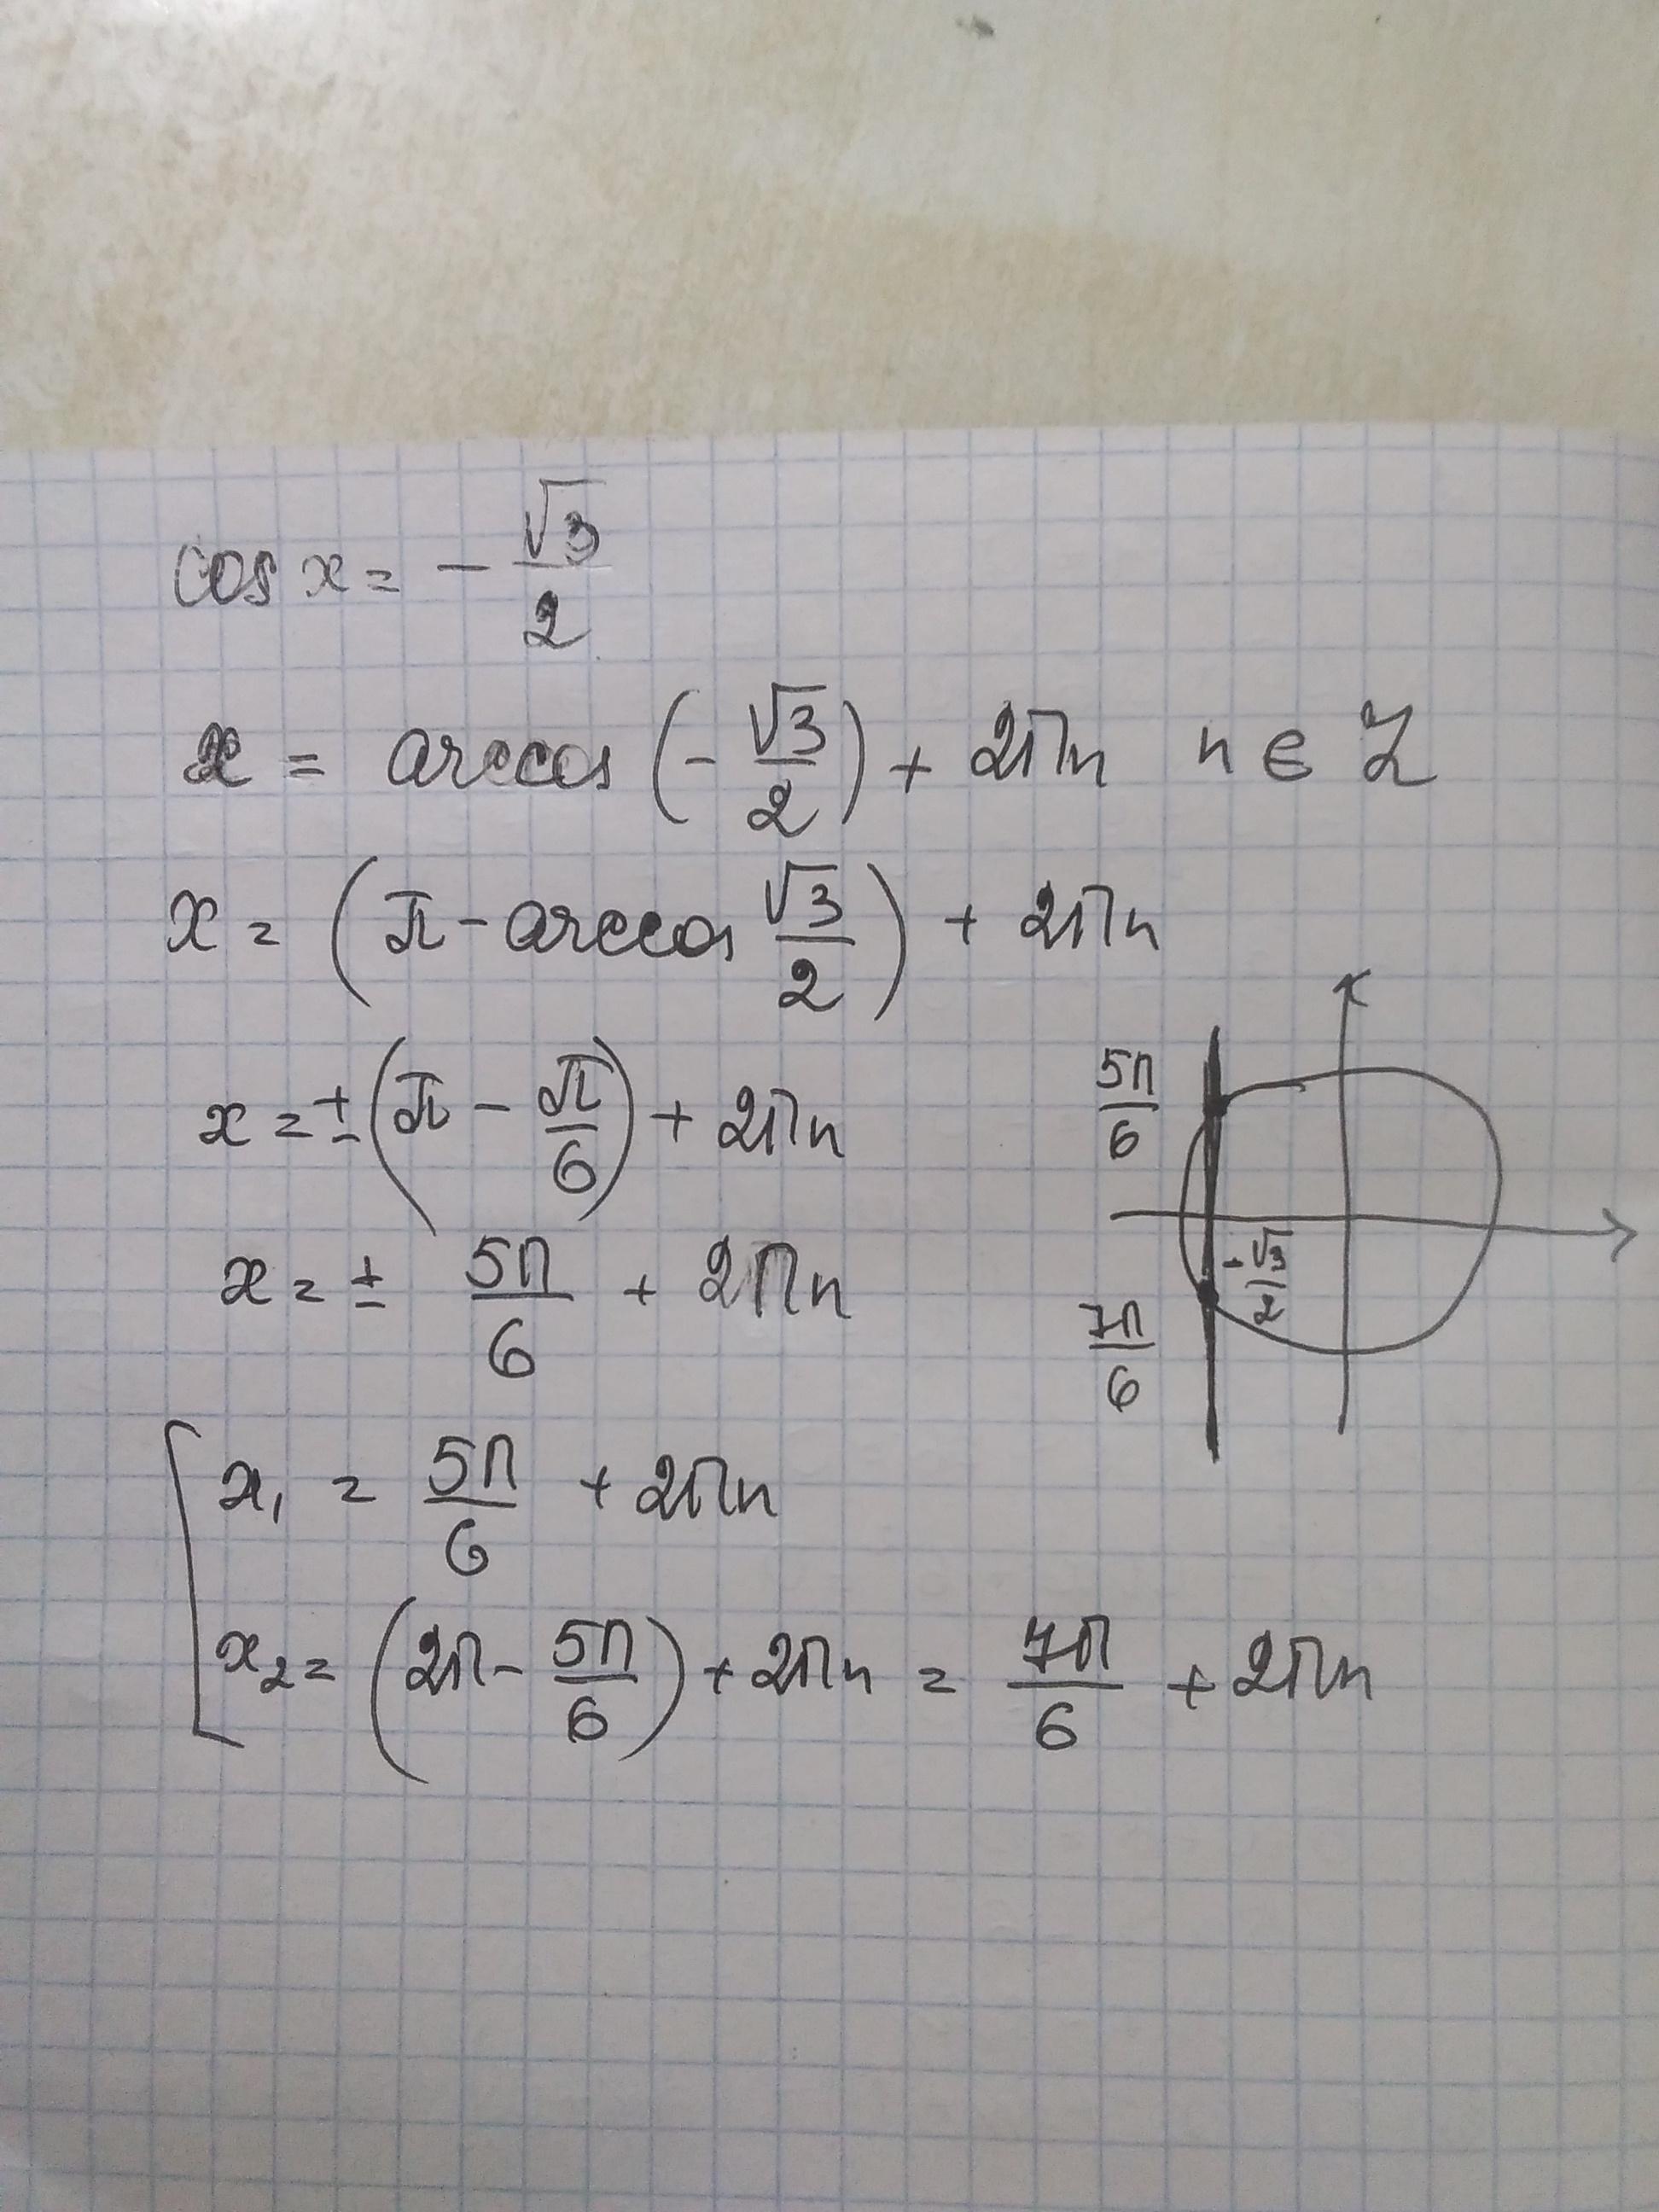 cos x = - √3/2
x = arccos (- √3/2) + 2πn n ∈ Z
x = (π - arccos √3/2) + 2πn
x = ± (π - π/6) + 2πn
x = ± 5π/6 + 2πn
x₁ = 5π/6 + 2πn
x₂ = (2π - 5π/6) + 2πn = 7π/6 + 2πn
5π/6
-√3/2
7π/6